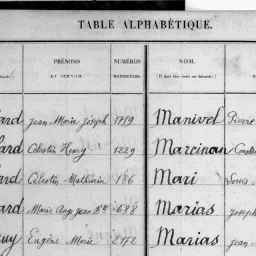 TABLE ALPHABÉTIQUE.
PRÉNOMS NUMÉROS NOM.
ard Jean Marie Joseph 1719 Manivel Pierre
ard Célestin Henry 1229 Marcinan
ard Célestin Mathurin 186 Mari Louis
ard Marie Ange Jean Bte 688 Marias Joseph
uy Eugène Marie 2172 Marias Jean